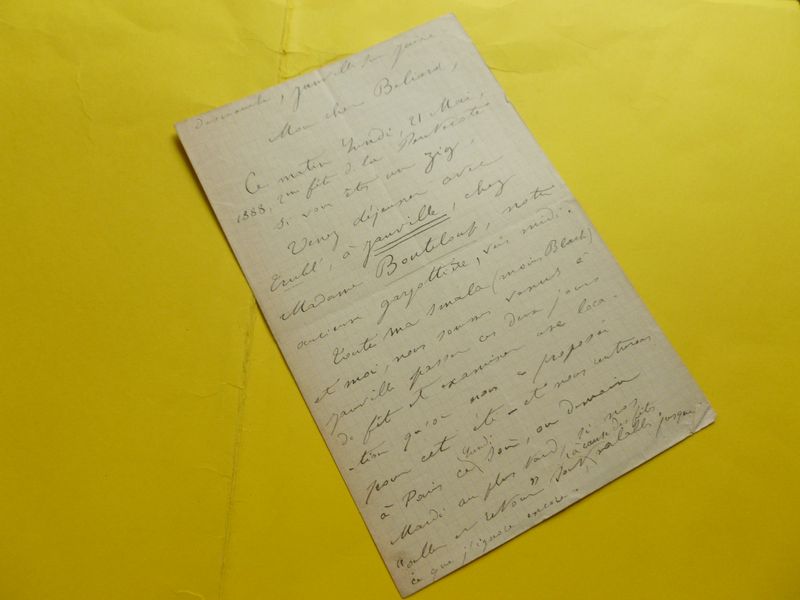 dimanche, Janville sur Juine
Mon cher Béliard,
Ce matin Lundi, 21 Mai,
1888, une fête de la Pentecôte
si vous êtes un zig,
Venez déjeuner avec
Trubl', à Janville, chez
Madame Bouteloup, notre
ancienne gargottière, vers midi.
Toute ma smala (moins Black)
et moi, nous sommes venus à
Janville passer ces deux jours
de fête et examiner une loca-
-tion qu'on nous a proposée
pour cet été - et nous rentrerons
à Paris ce soir, ou demain
Lundi
Mardi au plus tard, si nos
à cause des fêtes
"aller et retour" sont valables jusque
ce que j'ignore encore.